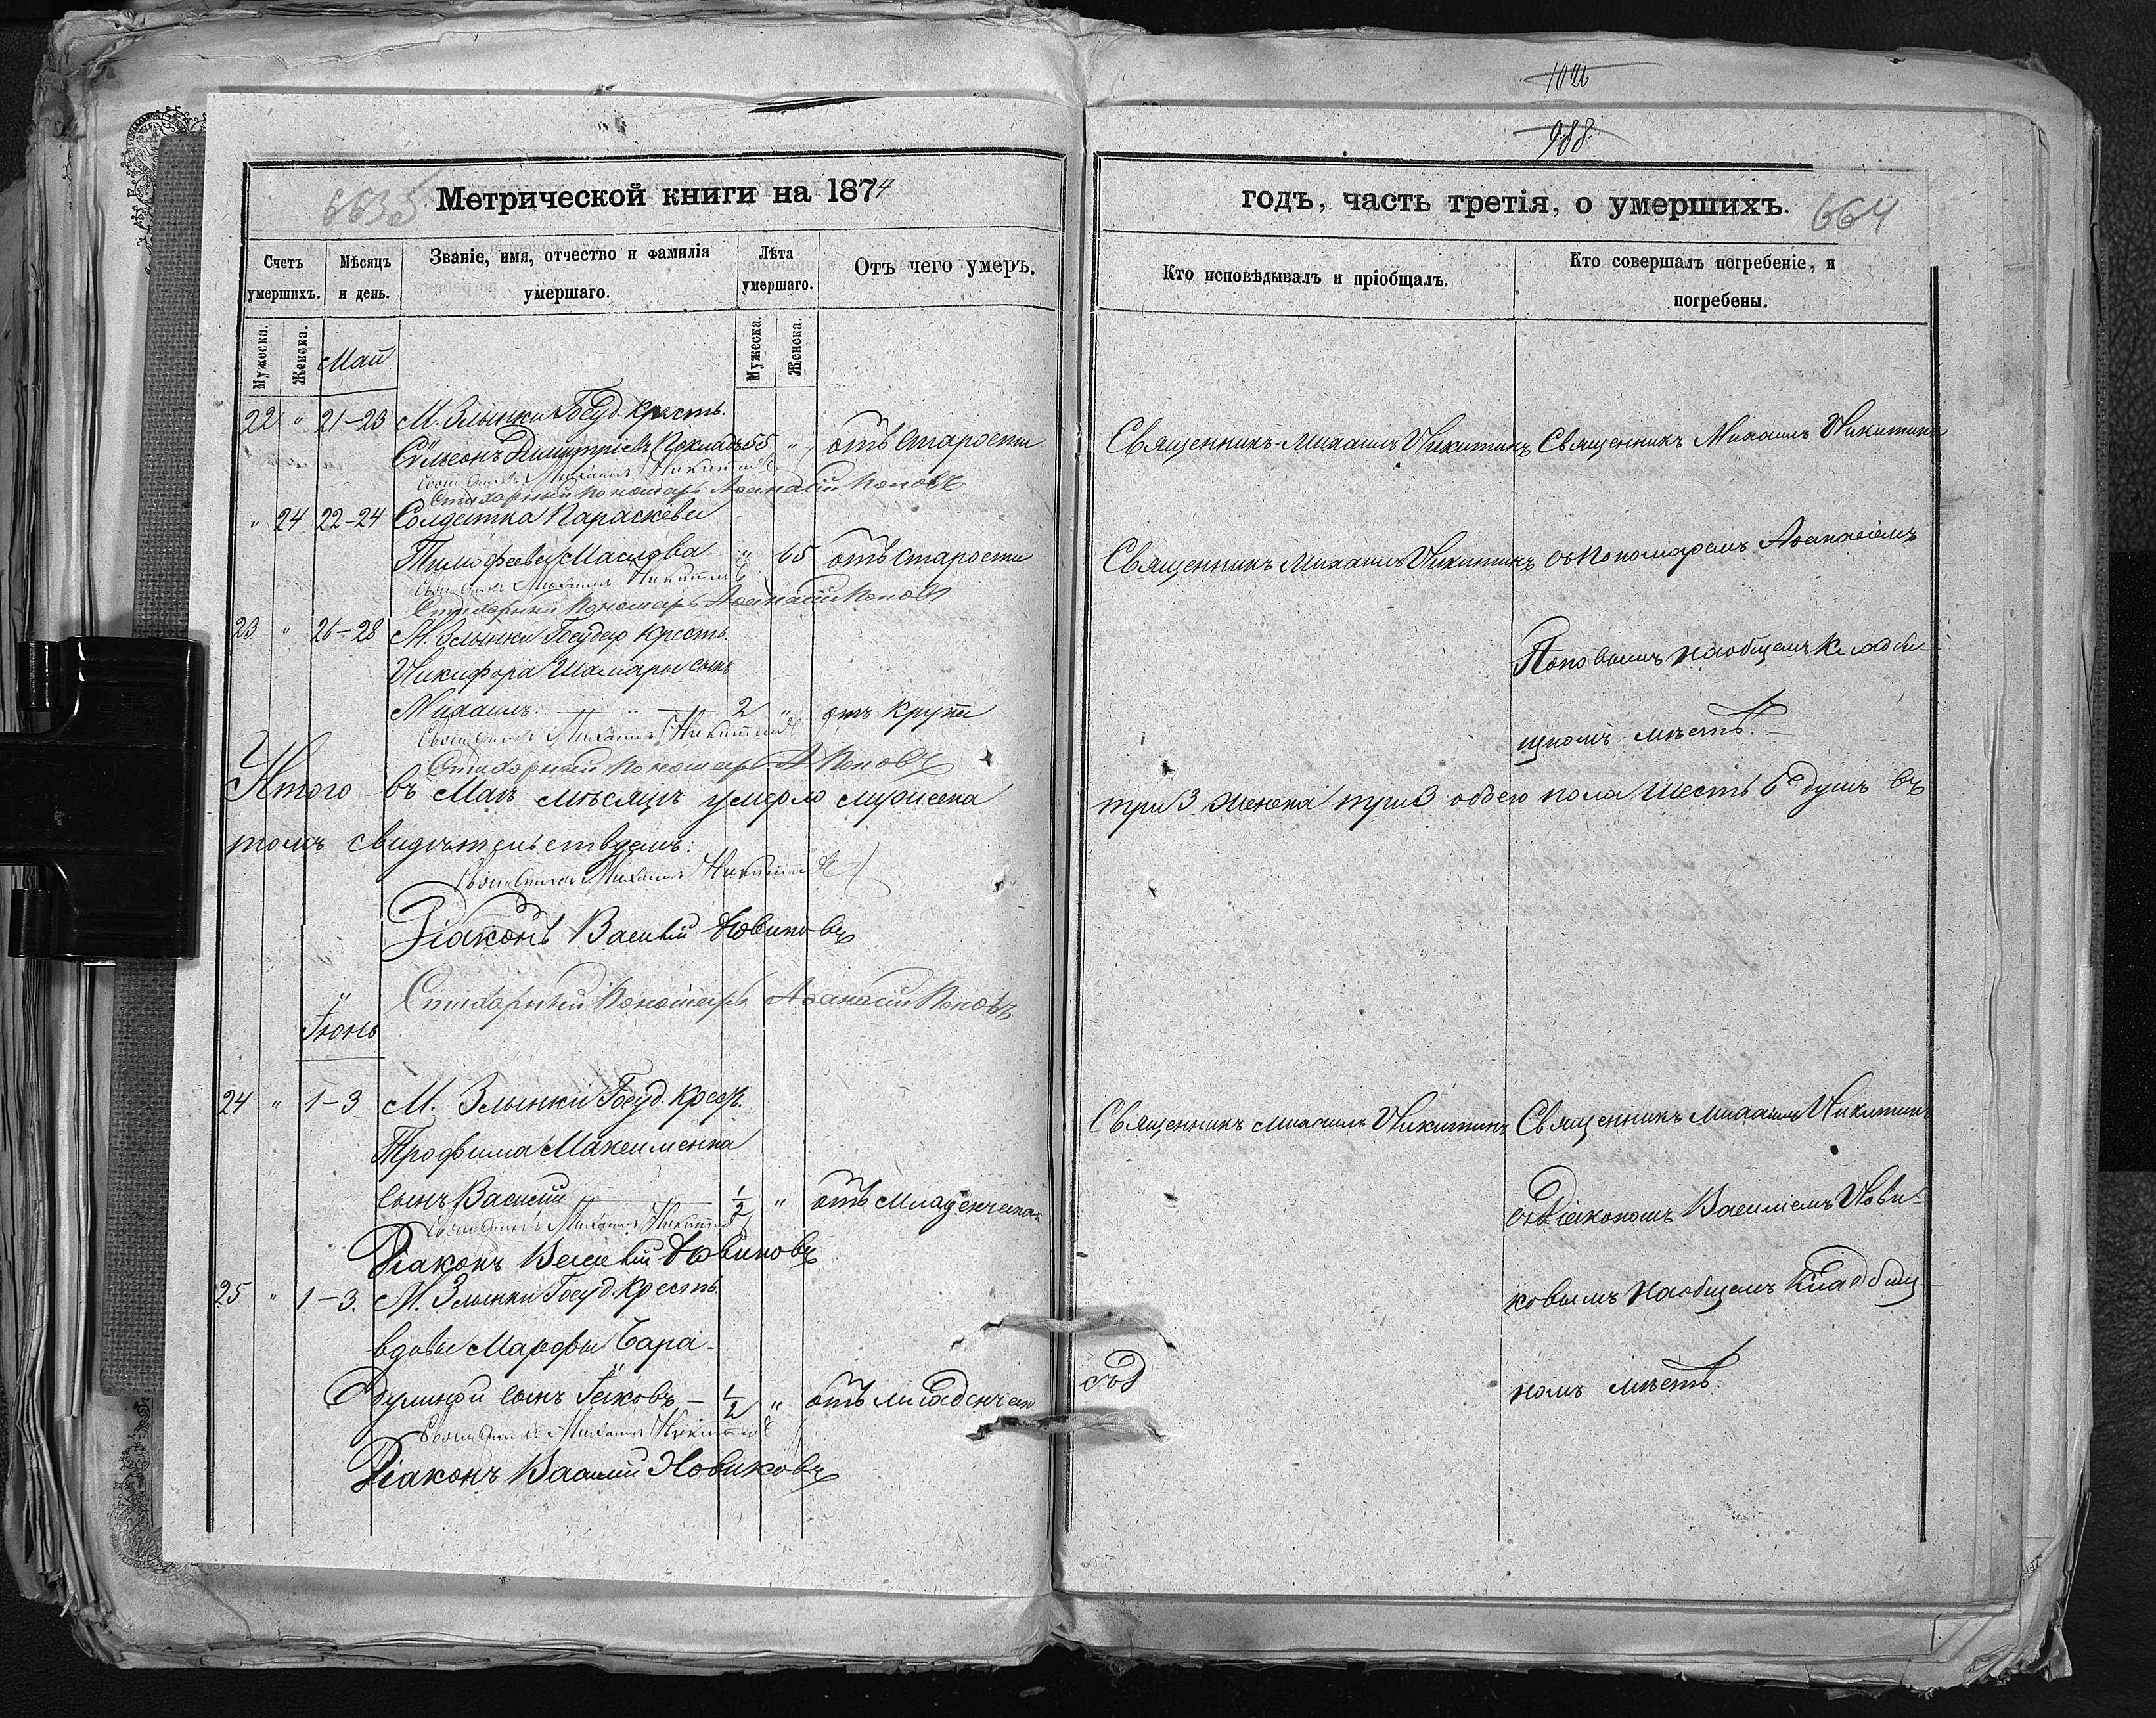 1021
988
663
Метрической книги на 1874
годъ, часть третія, о умершихъ.
664
Счетъ умершихъ.
Мѣсяцъ и день.
Званіе, имя, отчество и фамилія умершаго.
Лѣта умершаго.
Отъ чего умеръ.
Кто исповѣдывалъ и пріобщалъ.
Кто совершалъ погребеніе, и погребены.
Мужеска.
Женска.
Май
Мужеска.
Женска.
22 " 21-23 М. Злынки Госуд. Кресть.
Сѵмеонъ Димитріевъ 55 " отъ старости
Священникъ Михаилъ Никитинъ
Священникъ Михаилъ Никитинъ
Священникъ Михаилъ Никитинъ
Стихарный Пономарь Аѳанасій Поповъ
" 24 22-24 Солдатка Параскева
Тимофеева Маслова " 65 отъ старости
Священникъ Михаилъ Никитинъ
съ Пономаремъ Аѳанасіемъ
Священникъ Михаилъ Никитинъ
Стихарный Пономарь Аѳанасій Поповъ
23 " 26-28 М. Злынки Государ Кресть.
Никифора Шамары сынъ
Михаилъ. 2 " отъ крупа
Поповымъ на общемъ кладби-
щномъ мѣстѣ.
Священникъ Михаилъ Никитинъ
Стихарный Пономарь А Поповъ
Итого въ Маѣ мѣсяцѣ умерло мужеска
три 3 женска три 3 обоего пола шесть 6 душъ въ
томъ свидѣтельствуемъ:
Священникъ Михаилъ Никитинъ
Діаконъ Василій Новиковъ
Стихарный Пономарь Аѳанасій Поповъ
Іюнь
24 " 1-3 М. Злынки Госуд. Крест.
Священникъ Михаилъ Никитинъ
Священникъ Михаилъ Никитинъ
Трофима Максименка
сынъ Василій 1/2 " отъ младенческой
съ Діакономъ Василіемъ Нови-
Священникъ Михаилъ Никитинъ
Діаконъ Василій Новиковъ
25 " 1-3. М. Злынки Госуд. Кресть.
ковымъ на общемъ кладбищ-
вдовы Марфы Бара-
булиной сынъ Іаковъ - 1/2 " отъ младенчес
номъ мѣстѣ.
Священникъ Михаилъ Никитинъ
Діаконъ Василій Новиковъ